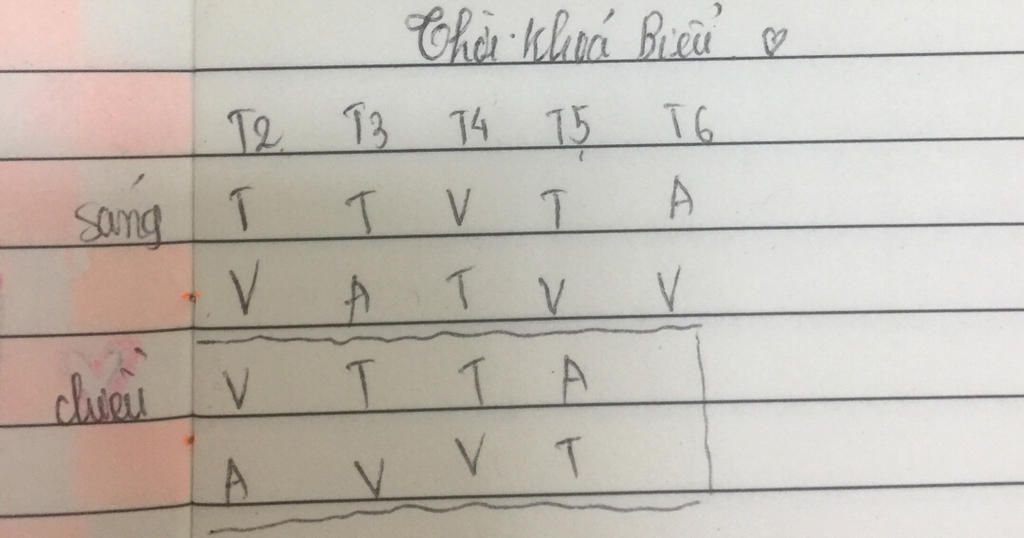 Thời Khoá Biểu ♡
T2 T3 T4 T5 T6
sáng T T V T A
V A T V V
chiều V T T A
A V V T